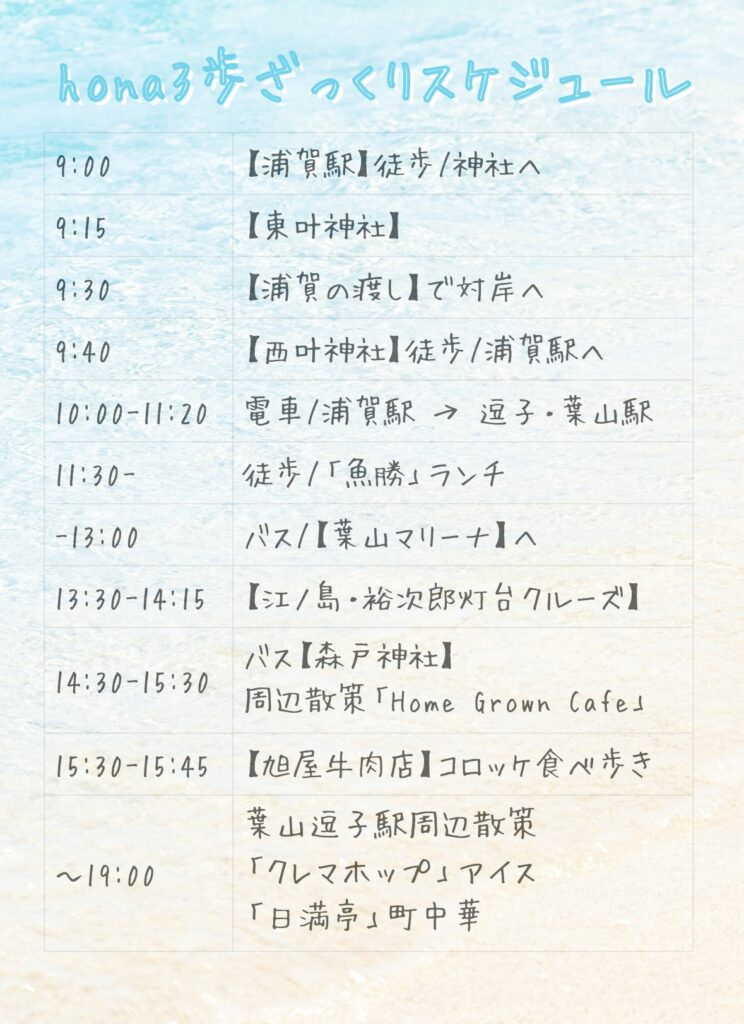 hona3歩ざっくりスケジュール
9:00 【浦賀駅】徒歩/神社へ
9:15 【東叶神社】
9:30 【浦賀の渡し】で対岸へ
9:40 【西叶神社】徒歩/浦賀駅へ
10:00-11:20 電車/浦賀駅 → 逗子・葉山駅
11:30- 徒歩/「魚勝」ランチ
-13:00 バス/【葉山マリーナ】へ
13:30-14:15 【江ノ島・裕次郎灯台クルーズ】
14:30-15:30 バス【森戸神社】
周辺散策「Home Grown Cafe」
15:30-15:45 【旭屋牛肉店】コロッケ食べ歩き
～19:00 葉山逗子駅周辺散策
「クレマホップ」アイス
「日満亭」町中華